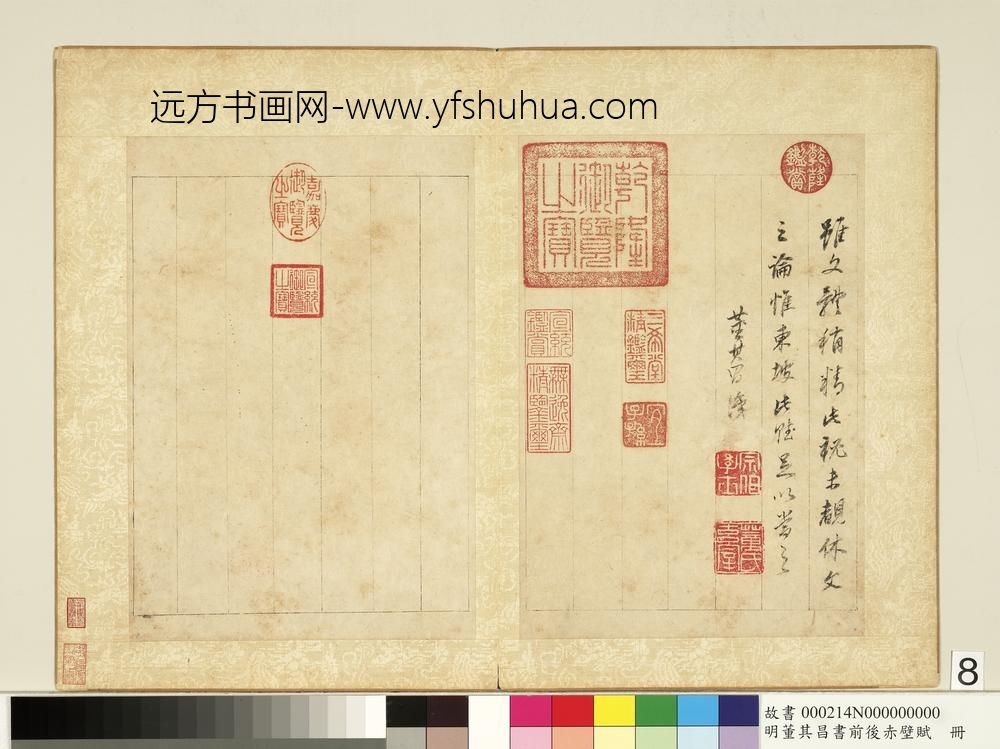 远方书画网-www.yfshuhua.com
乾隆鑑賞
雖文體稍精此祕未覩休文
之論惟東坡此賦足以當之
董其昌識
宗伯學士
董氏玄宰
乾隆御覽之寶
三希堂精鑑璽
宜子孫
宣統鑑賞
無逸齋精鑑璽
嘉慶御覽之寶
宣統御覽之寶
8
故書 000214N000000000
明董其昌書前後赤壁賦 冊